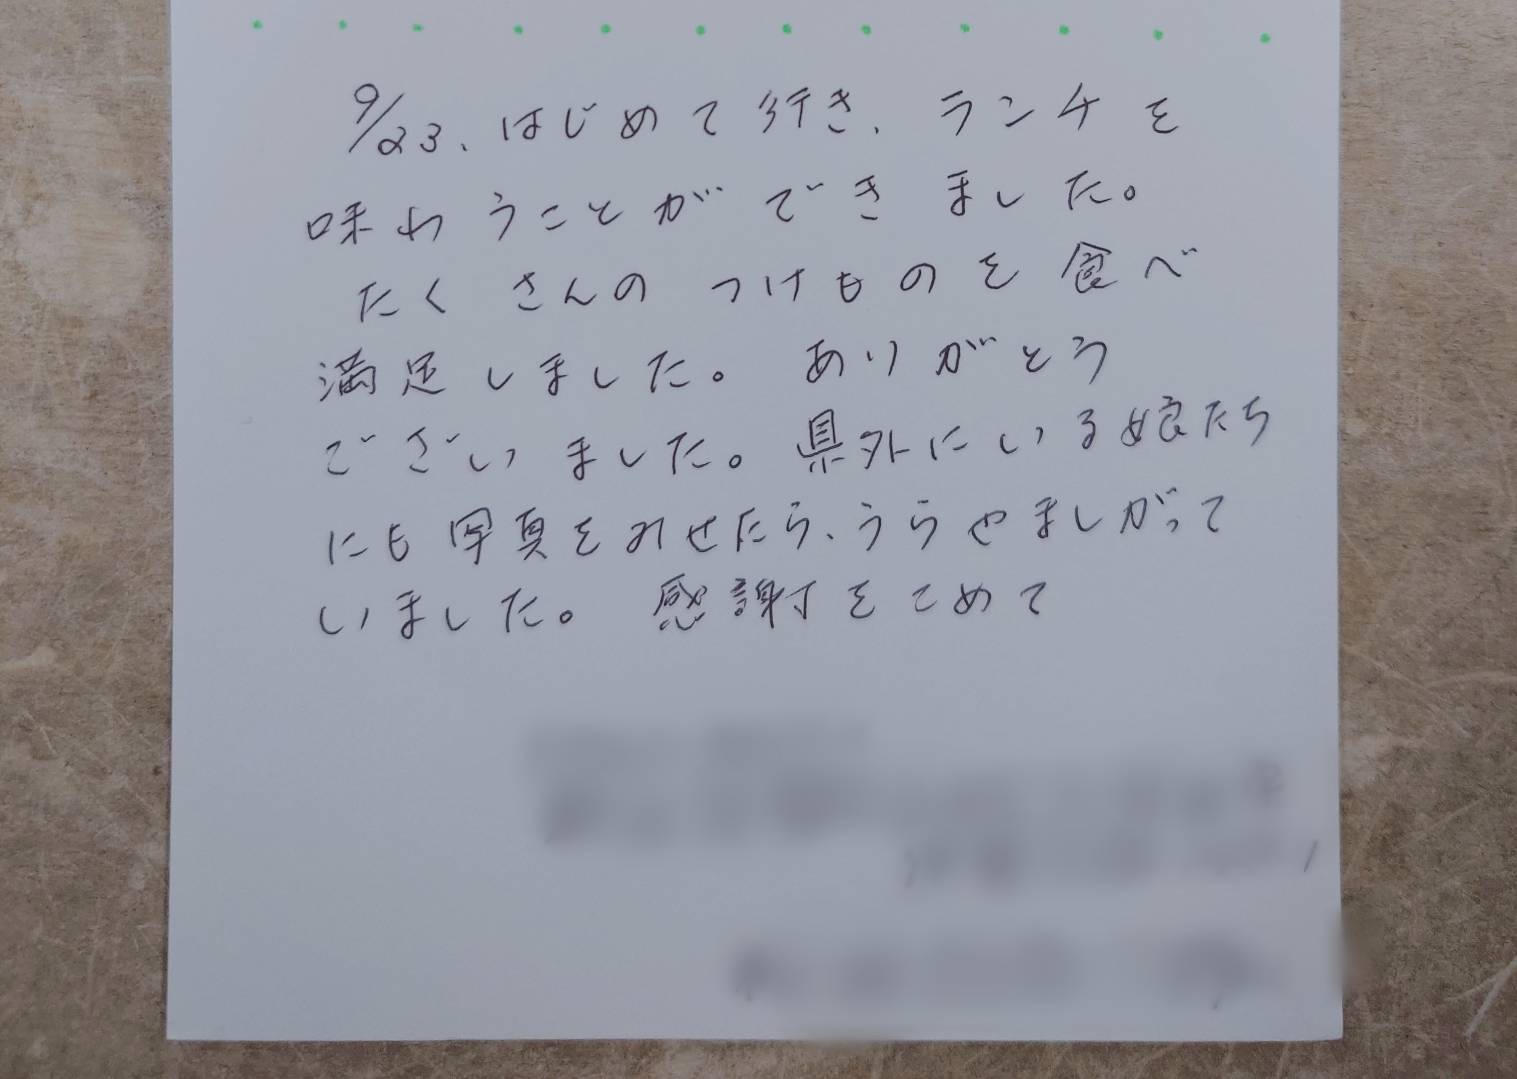 9/23、はじめて行き、ランチを
味わうことができました。
たくさんのつけものを食べ
満足しました。ありがとう
ございました。県外にいる娘たち
にも写真をみせたら、うらやましがって
いました。感謝をこめて